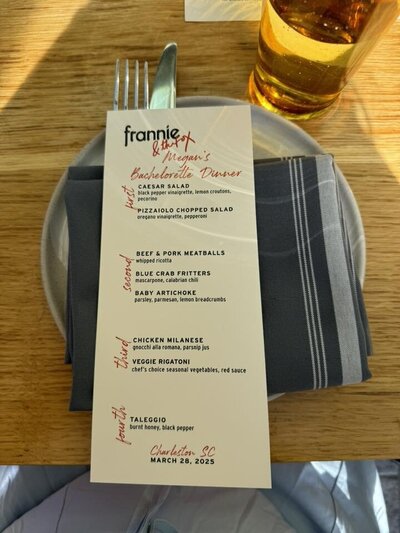 frannie
& the fox
Megan's
Bachelorette Dinner
first
CAESAR SALAD
black pepper vinaigrette, lemon croutons,
pecorino
PIZZAIOLO CHOPPED SALAD
oregano vinaigrette, pepperoni
second
BEEF & PORK MEATBALLS
whipped ricotta
BLUE CRAB FRITTERS
mascarpone, calabrian chili
BABY ARTICHOKE
parsley, parmesan, lemon breadcrumbs
third
CHICKEN MILANESE
gnocchi alla romana, parsnip jus
VEGGIE RIGATONI
chef's choice seasonal vegetables, red sauce
fourth
TALEGGIO
burnt honey, black pepper
Charleston SC
MARCH 28, 2025